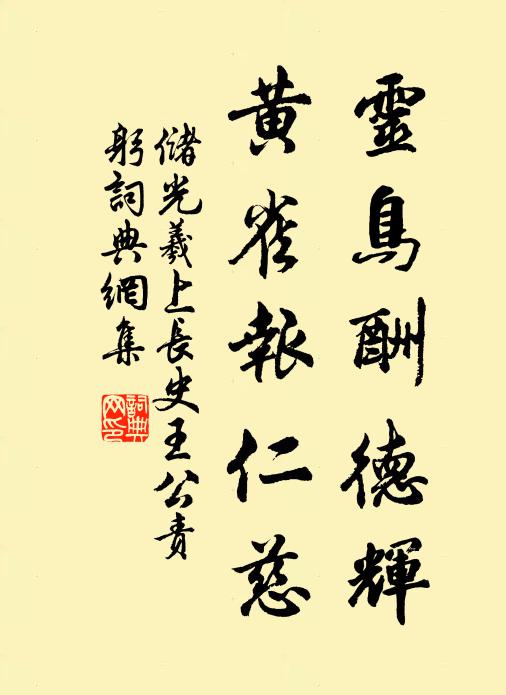 靈鳥酬德輝
黃雀報仁慈
儲光羲上長史王公責
躬詞典網集
詞典
网印